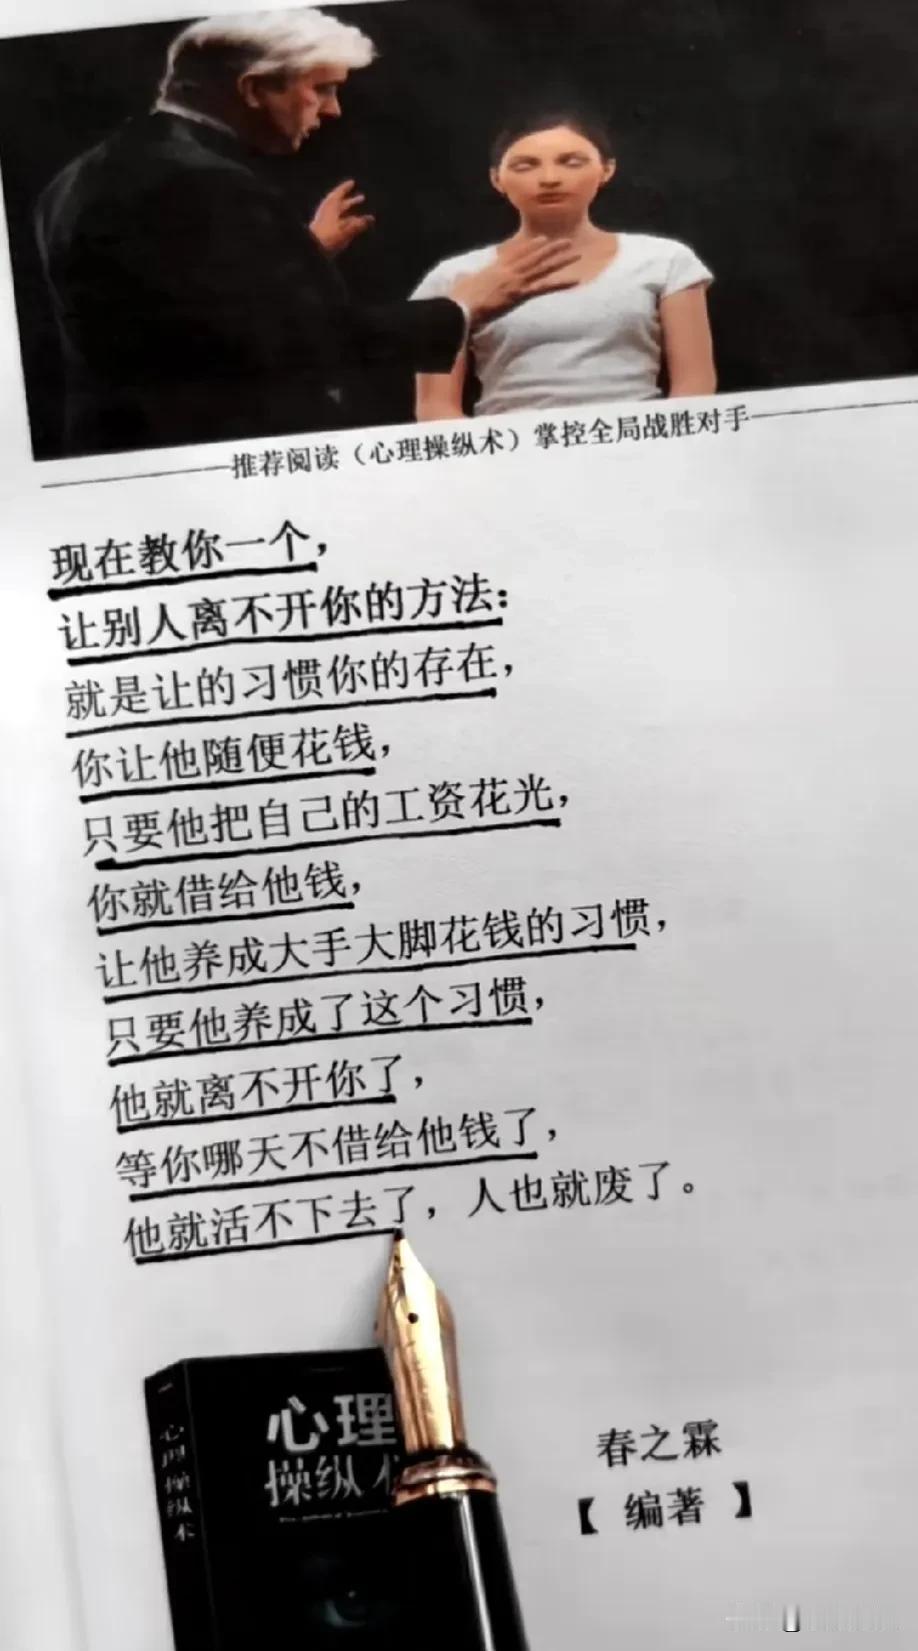 推荐阅读（心理操纵术）掌控全局战胜对手
现在教你一个，
让别人离不开你的方法：
就是让的习惯你的存在，
你让他随便花钱，
只要他把自己的工资花光，
你就借给他钱，
让他养成大手大脚花钱的习惯，
只要他养成了这个习惯，
他就离不开你了，
等你哪天不借给他钱了，
他就活不下去了，人也就废了。
心理
操纵术
心理操纵术
春之霖
【编著】